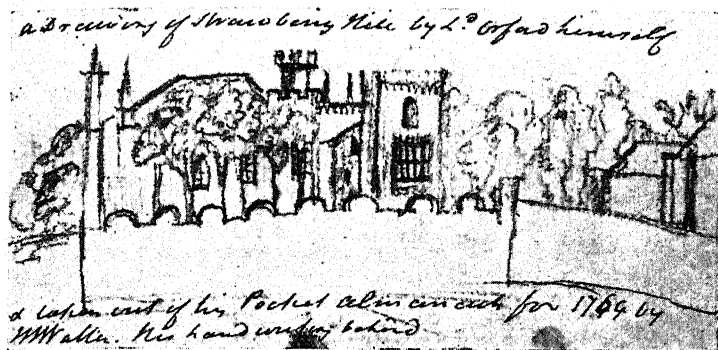 a Drawing of Strawberry Hill by Ld. Orford himself
& taken out of his Pocket almanack for 1769 by
His hand writing behind